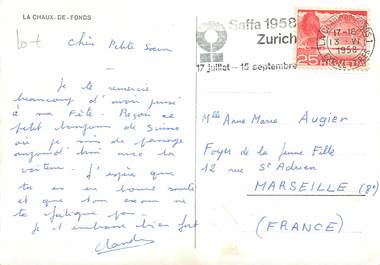 LA CHAUX-DE-FONDS
Chère Petite Sœur
Je te remercie
beaucoup d'avoir pensé
à ma Fête. Reçois ce
petit bonjour de Suisse
où je suis de passage
aujourd'hui avec la
voiture. J'espère que
tu es en bonne santé
et que ton examen ne
te fatigue pas.
Je t'embrasse bien fort
Claude
Saffa 1958
Zurich
17 juillet - 15 septembre
17-18
13 VI
1958
25 HELVETIA
Mlle Anne Marie Augier
Foyer de la Jeune Fille
12 rue St Adrien
MARSEILLE (8e)
(FRANCE)